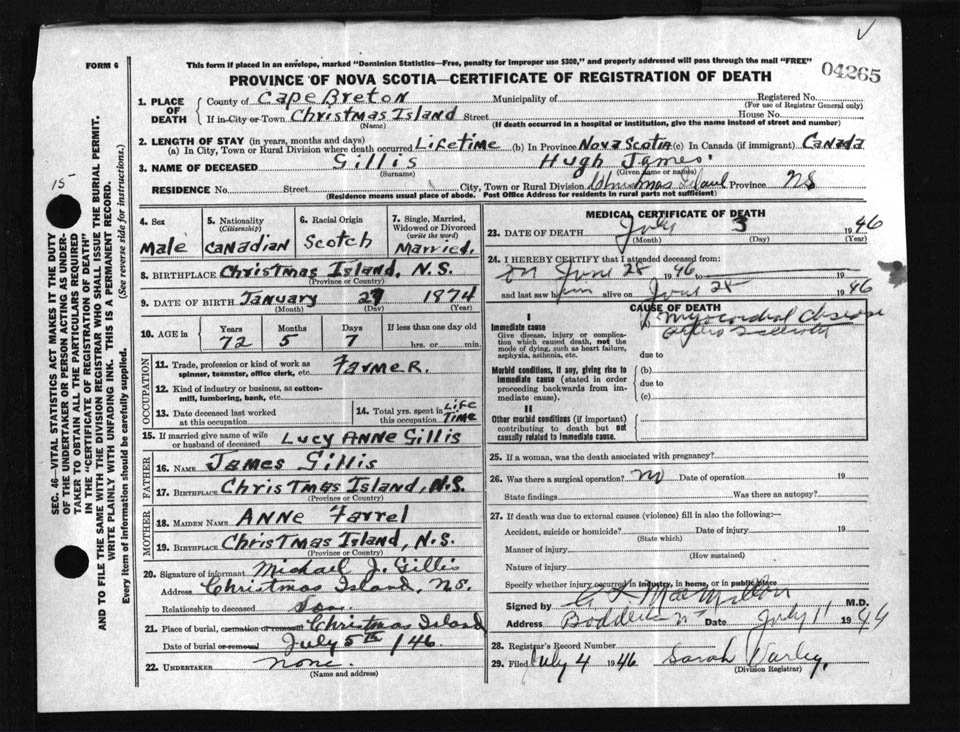 This form if placed in an envelope, marked "Dominion Statistics—Free, penalty for improper use $300," and properly addressed will pass through the mail "FREE"
FORM 6
PROVINCE OF NOVA SCOTIA—CERTIFICATE OF REGISTRATION OF DEATH
04265
1. PLACE OF DEATH
County of Cape Breton Municipality of Registered No.
(For use of Registrar General only)
If in City or Town Christmas Island Street House No.
(Name) (If death occurred in a hospital or institution, give the name instead of street and number)
2. LENGTH OF STAY (in years, months and days)
(a) In City, Town or Rural Division where death occurred Lifetime (b) In Province Nova Scotia (c) In Canada (if immigrant) Canada
3. NAME OF DECEASED Gillis Hugh James
(Surname) (Given name or names)
RESIDENCE No. Street City, Town or Rural Division Christmas Island Province NS
(Residence means usual place of abode. Post Office Address for residents in rural parts not sufficient)
4. Sex
Male
5. Nationality
(Citizenship)
Canadian
6. Racial Origin
Scotch
7. Single, Married, Widowed or Divorced
(write the word)
Married.
8. BIRTHPLACE Christmas Island, N.S.
(Province or Country)
9. DATE OF BIRTH January 27 1874
(Month) (Day) (Year)
10. AGE in
Years Months Days If less than one day old
72 5 7 hrs. or min.
OCCUPATION
11. Trade, profession or kind of work as spinner, teamster, office clerk, etc. Farmer.
12. Kind of industry or business, as cotton-mill, lumbering, bank, etc.
13. Date deceased last worked at this occupation
14. Total yrs. spent in this occupation Life Time
15. If married give name of wife or husband of deceased Lucy Anne Gillis
FATHER
16. NAME James Gillis
17. BIRTHPLACE Christmas Island, N.S.
(Province or Country)
MOTHER
18. MAIDEN NAME Anne Farrel
19. BIRTHPLACE Christmas Island, N.S.
(Province or Country)
20. Signature of informant Michael J. Gillis
Address Christmas Island, N.S.
Relationship to deceased Son.
21. Place of burial, cremation or removal Christmas Island
Date of burial or removal July 5th /46.
22. UNDERTAKER none.
(Name and address)
MEDICAL CERTIFICATE OF DEATH
23. DATE OF DEATH July 3 1946
(Month) (Day) (Year)
24. I HEREBY CERTIFY that I attended deceased from:
on June 28 1946 to 19
and last saw him alive on June 28 1946
CAUSE OF DEATH
I
Immediate cause
Give disease, injury or complication which caused death, not the mode of dying, such as heart failure, asphyxia, asthenia, etc.
(a) Myocardial disease
due to
Morbid conditions, if any, giving rise to immediate cause (stated in order proceeding backwards from immediate cause).
(b)
due to
(c)
II
Other morbid conditions (if important) contributing to death but not causally related to immediate cause.
25. If a woman, was the death associated with pregnancy?
26. Was there a surgical operation? No Date of operation 19
State findings Was there an autopsy?
27. If death was due to external causes (violence) fill in also the following:—
Accident, suicide or homicide? Date of injury 19
(State which)
Manner of injury
(How sustained)
Nature of injury
Specify whether injury occurred in industry, in home, or in public place
Signed by MacMillan M.D.
Address Date July 11 19
28. Registrar's Record Number
29. Filed July 4 1946 Sarah
(Division Registrar)
15
SEC. 46—VITAL STATISTICS ACT MAKES IT THE DUTY
OF THE UNDERTAKER OR PERSON ACTING AS UNDER-
TAKER TO OBTAIN ALL THE PARTICULARS REQUIRED
IN THE "CERTIFICATE OF REGISTRATION OF DEATH"
AND TO FILE THE SAME WITH THE DIVISION REGISTRAR WHO SHALL ISSUE THE BURIAL PERMIT.
WRITE PLAINLY WITH UNFADING INK. THIS IS A PERMANENT RECORD.
Every item of information should be carefully supplied. (See reverse side for instructions.)